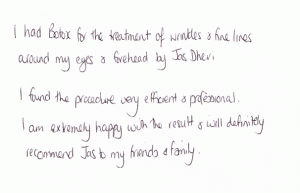 I had Botox for the treatment of wrinkles & fine lines
around my eyes & forehead by Jas Dheri.
I found the procedure very efficient & professional.
I am extremely happy with the result & will definitely
recommend Jas to my friends & family.